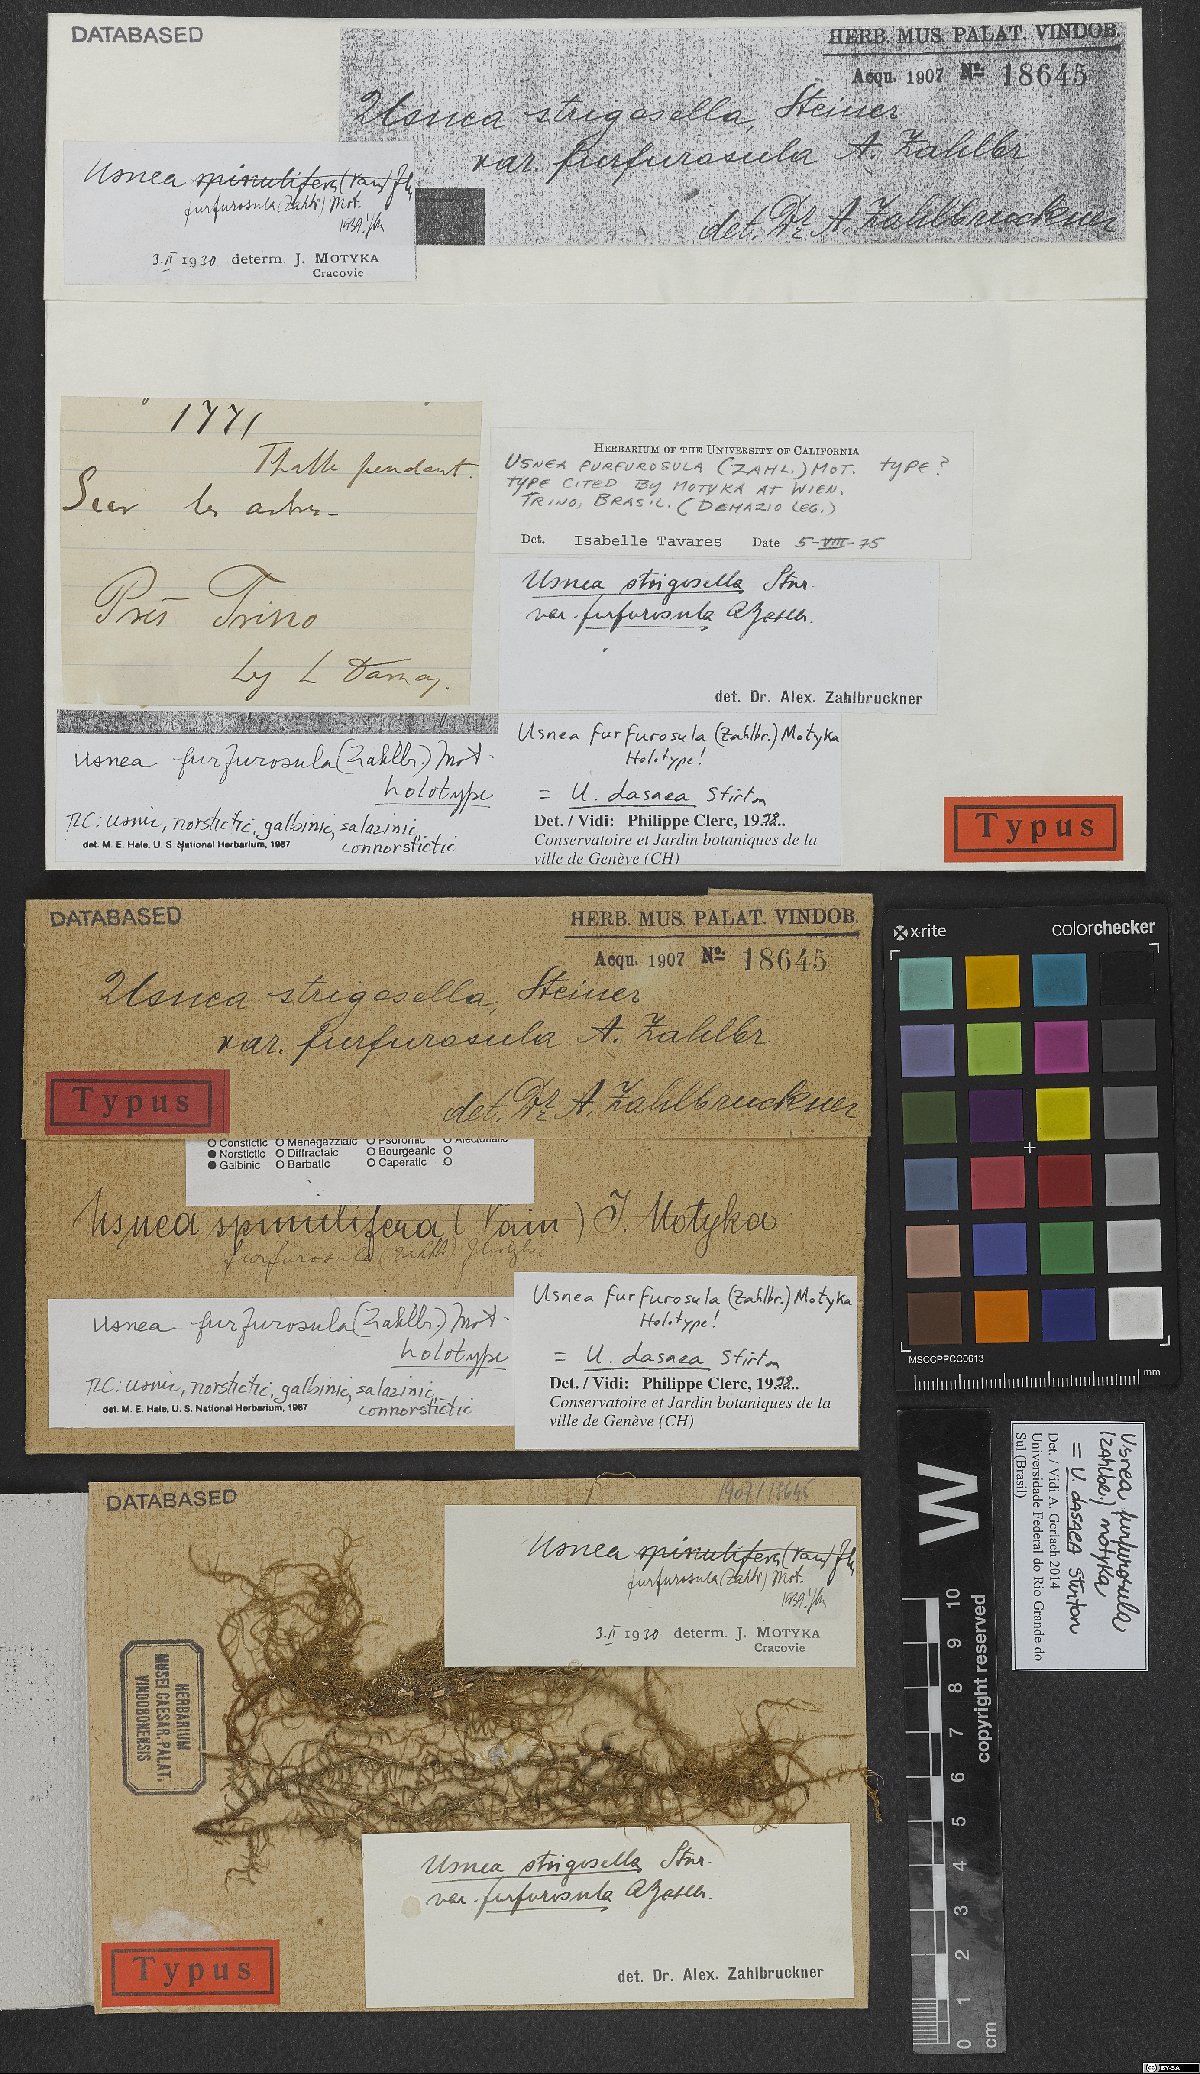 DATABASED
HERB. MUS. PALAT. VINDOB.
Acqu. 1907 No. 18645
Usnea strigosella, Steiner
var. furfurosula A. Zahlbr
det. Dr. A. Zahlbruckner
Usnea spinulifera (Vain)
furfurosula (Zahlbr) Mot.
3.II 1930 determ. J. MOTYKA
Cracovie
1771
Thalle pendant.
Sur les arbres
Près Trino
leg L Damaz.
HERBARIUM OF THE UNIVERSITY OF CALIFORNIA
USNEA FURFUROSULA (ZAHL.) MOT. TYPE?
TYPE CITED BY MOTYKA AT WIEN.
TRINO, BRASIL. (DEMAZIO LEG.)
Det. Isabelle Tavares Date 5-VIII-75
Usnea strigosella Stnr.
var. furfurosula AZahlb.
det. Dr. Alex. Zahlbruckner
Usnea furfurosula (Zahlbr.) Mot.
holotype
TLC: usnic, norstictic, galbinic, salazinic,
connorstictic
det. M. E. Hale, U. S. National Herbarium, 1987
Usnea furfurosula (Zahlbr.) Motyka
Holotype!
= U. dasaea Stirton
Det. / Vidi: Philippe Clerc, 1992..
Conservatoire et Jardin botaniques de la
ville de Genève (CH)
Typus
DATABASED
HERB. MUS. PALAT. VINDOB.
Acqu. 1907 No. 18645
Usnea strigosella, Steiner
var. furfurosula A. Zahlbr
Typus
det. Dr. A. Zahlbruckner
Constictic Menegazziaic Psoromic Alectorialic
Norstictic Diffractaic Bourgeanic
Galbinic Barbatic Caperatic
Usnea spinulifera (Vain) J. Motyka
furfurosula (Zahlb)
Usnea furfurosula (Zahlbr.) Mot.
holotype
TLC: usnic, norstictic, galbinic, salazinic,
connorstictic
det. M. E. Hale, U. S. National Herbarium, 1987
Usnea furfurosula (Zahlbr.) Motyka
Holotype!
= U. dasaea Stirton
Det. / Vidi: Philippe Clerc, 1992..
Conservatoire et Jardin botaniques de la
ville de Genève (CH)
x-rite colorchecker
MSCCPPCC0613
mm
DATABASED
1907/18645
Usnea spinulifera (Vain)
furfurosula (Zahlbr) Mot.
3.II 1930 determ. J. MOTYKA
Cracovie
HERBARIUM
MUSEI CAESAR. PALAT.
VINDOBONENSIS
Usnea strigosella Stnr.
var. furfurosula AZahlb.
det. Dr. Alex. Zahlbruckner
Typus
W
copyright reserved
0 1 2 3 4 5 6 7 8 9 10
cm
Usnea furfurosula
(Zahlbr.) Motyka
= U. dasaea Stirton
Det. / Vidi A. Gerlach 2014
Universidade Federal do Rio Grande do
Sul (Brasil)
BY-SA